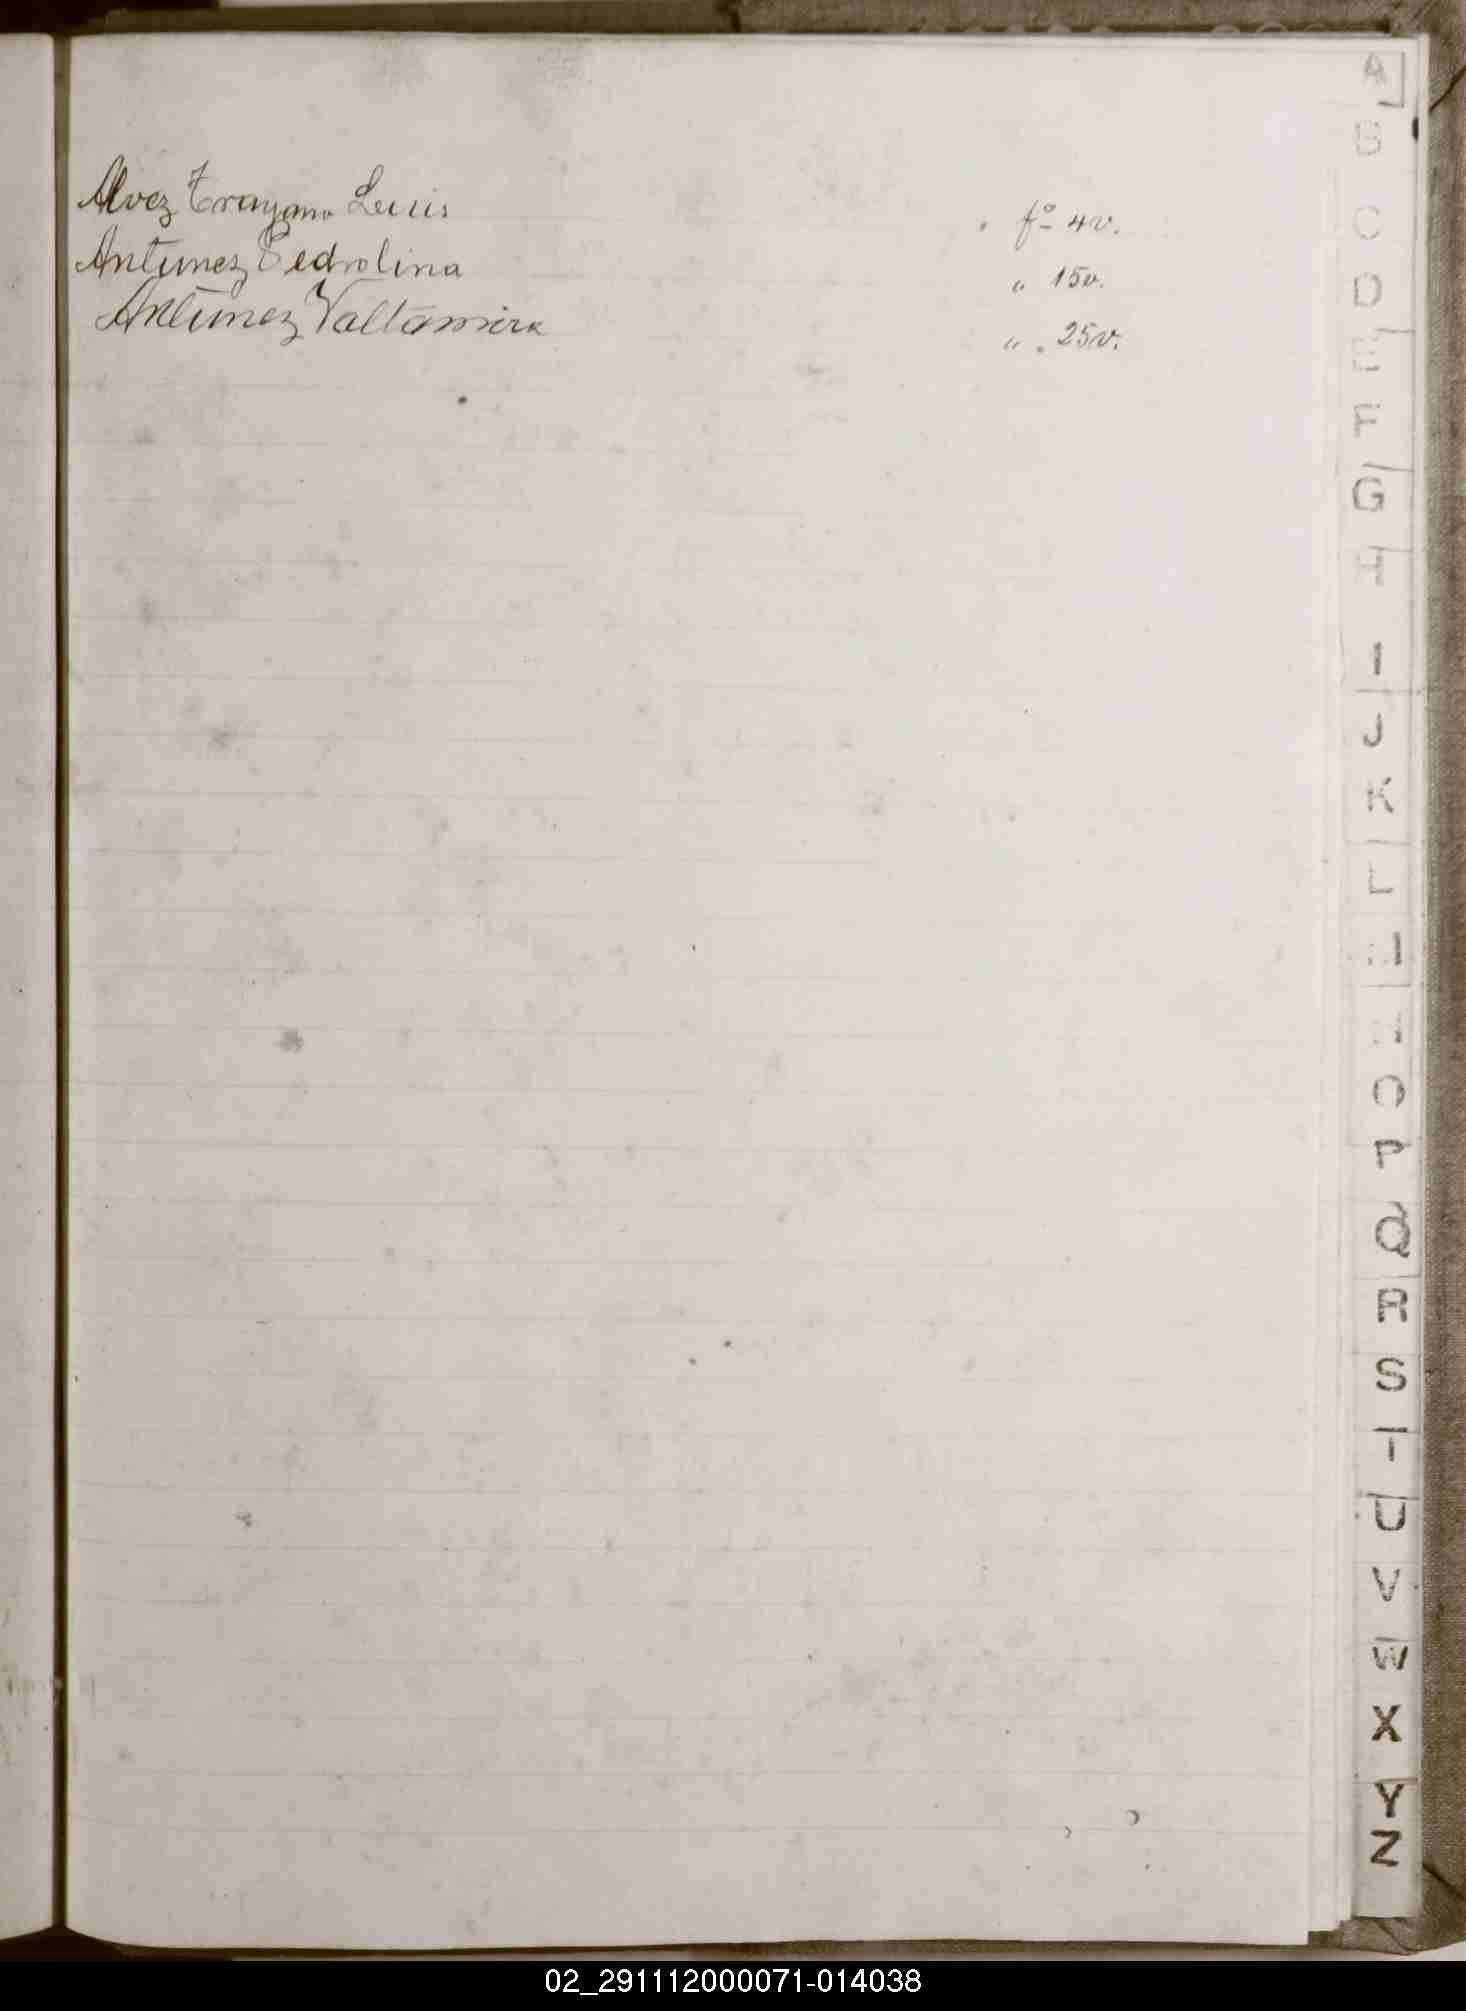 A
B
Alvez Trayano Luis " fº 4v.
C
Antunez Pedrolina " 15v.
D
Antunez Valtamira " " 25v.
E
F
G
H
I
J
K
L
M
N
O
P
Q
R
S
T
U
V
W
X
Y
Z
02_291112000071-014038